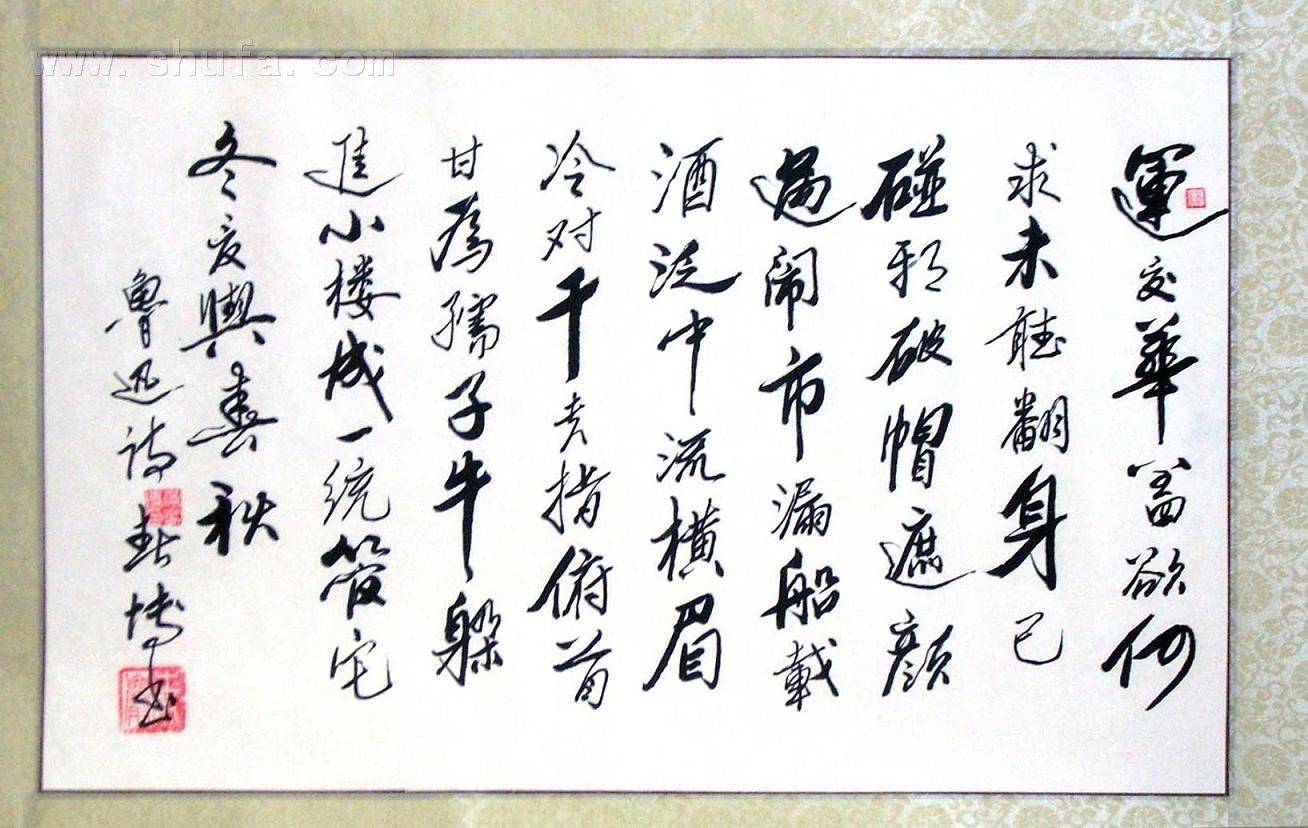 運交華蓋欲何
求未敢翻身已
碰頭破帽遮颜
過闹市漏船載
酒泛中流横眉
冷对千夫指俯首
甘為孺子牛躲
進小楼成一統管它
冬夏與春秋
魯迅诗 书
www.shufa.com